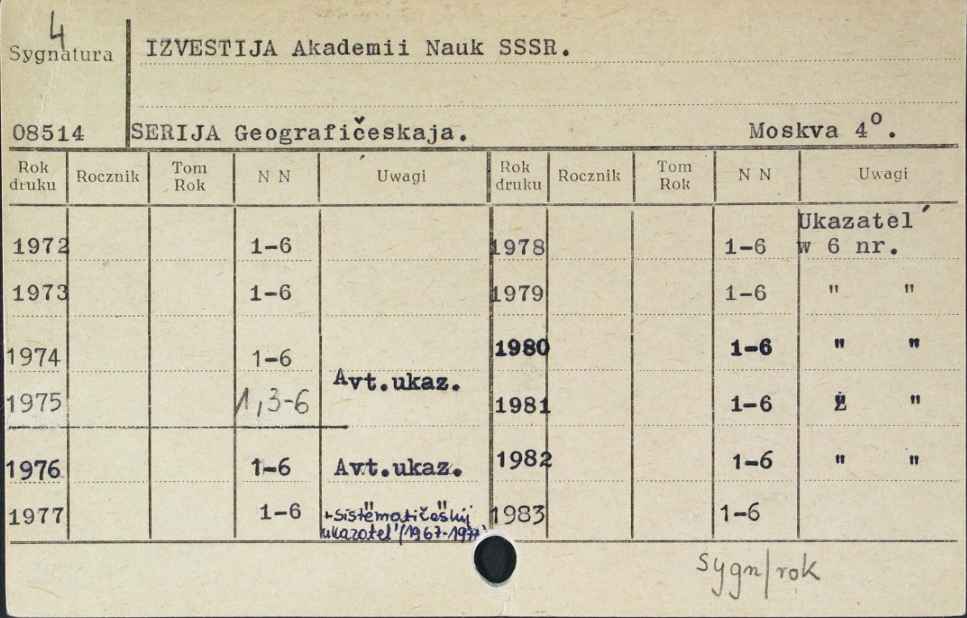 4
Sygnatura
IZVESTIJA Akademii Nauk SSSR.
08514 SERIJA Geografičeskaja. Moskva 4°.
Rok druku Rocznik Tom Rok N N Uwagi Rok druku Rocznik Tom Rok N N Uwagi
Ukazatel´
1972 1-6 1978 1-6 w 6 nr.
1973 1-6 1979 1-6 " "
1974 1-6 1980 1-6 " "
Avt.ukaz.
1975 1,3-6 1981 1-6 "
1976 1-6 Avt.ukaz. 1982 1-6 " "
1977 1-6 + "Sistematičeskij 1983 1-6
ukazatel" (1967-1977)
Sygn/rok